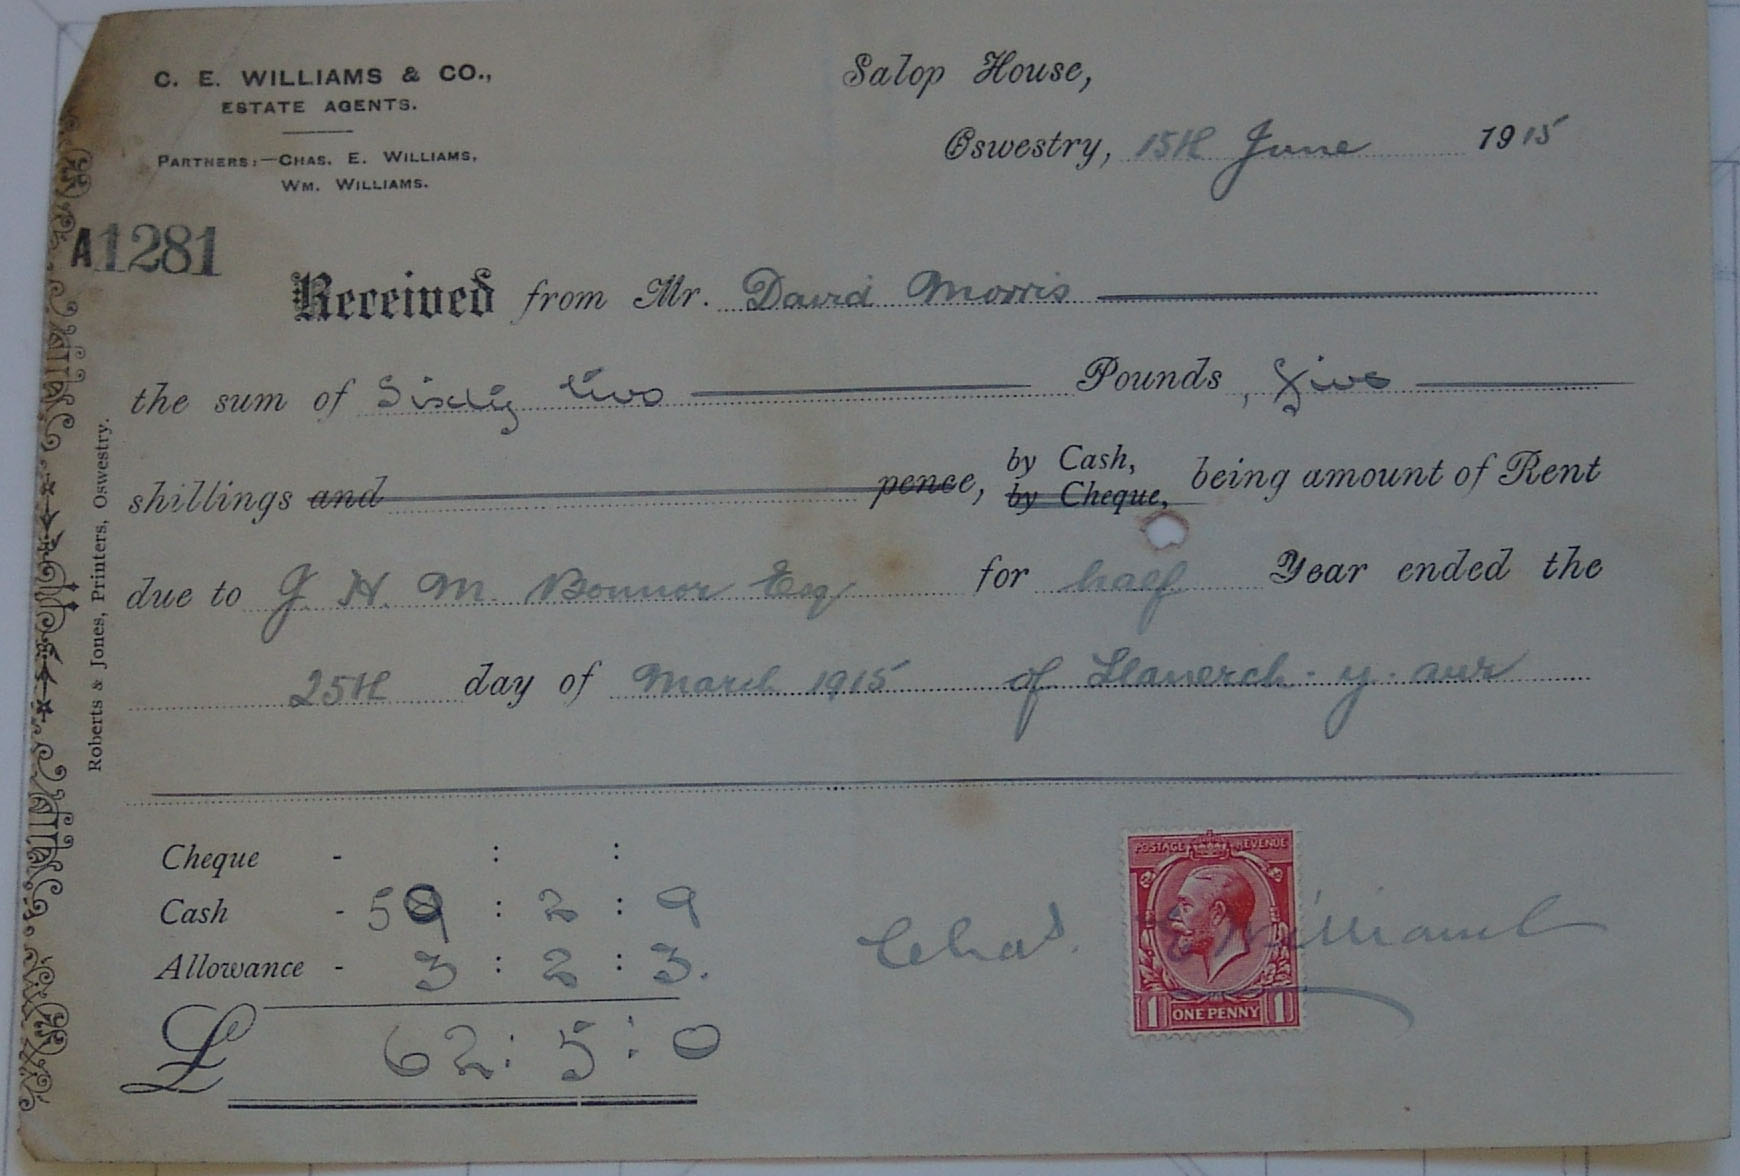 C. E. WILLIAMS & CO.,
ESTATE AGENTS.
PARTNERS:—CHAS. E. WILLIAMS,
WM. WILLIAMS.
Salop House,
Oswestry, 15th June 1915
A1281
Received from Mr. David Morris
the sum of Sixty two Pounds, five
shillings and pence, by Cash, by Cheque, being amount of Rent
due to J. H. M. Bonnor Esq for half Year ended the
25th day of March 1915 of Llanerch-y-aur
Roberts & Jones, Printers, Oswestry.
Cheque - : :
Cash - 59 : 2 : 9
Allowance - 3 : 2 : 3.
£ 62 : 5 : 0
Chas. E Williams
POSTAGE REVENUE
1 ONE PENNY 1